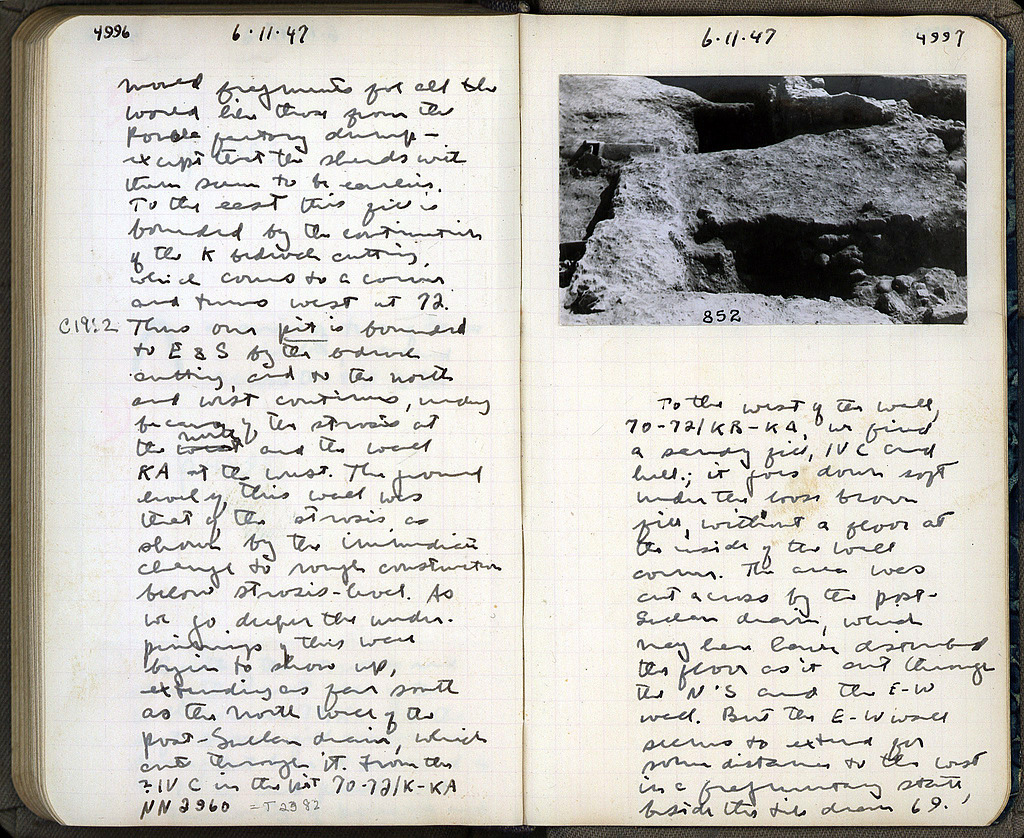 4996
6·11·47
mould fragments for all the
world like those from the
Poros factory dump –
except that the sherds with
them seem to be earlier.
To the east this fill is
bounded by the continuation
of the K bedrock cutting,
which comes to a corner
and turns west at 72.
C19:2 Thus our pit is bounded
to E & S by the bedrock
cutting, and to the north
and west continues,
because of the strosis at
the north and the wall
KA at the west. The ground
level of this wall was
that of the strosis, as
shown by the immediate
change to rough construction
below strosis-level. As
we go deeper the under-
pinnings of this wall
begin to show up,
extending as far south
as the north wall of the
post-Sullan drain, which
cuts through it. From the
?IV C in the pit 70-72/K-KA
NN 2960 = T 2382
6·11·47
4997
852
To the west of the wall,
70-72/KB-KA, we find
a sandy fill, IV C and
hell.; it goes down soft
under the loose brown
fill, without a floor at
the inside of the wall
corner. The area was
cut across by the post-
Sullan drain, which
may have have disturbed
the floor as it cut through
the N-S and the E-W
wall. But the E-W wall
seems to extend for
some distance to the west
in a fragmentary state,
beside the tile drain 69.